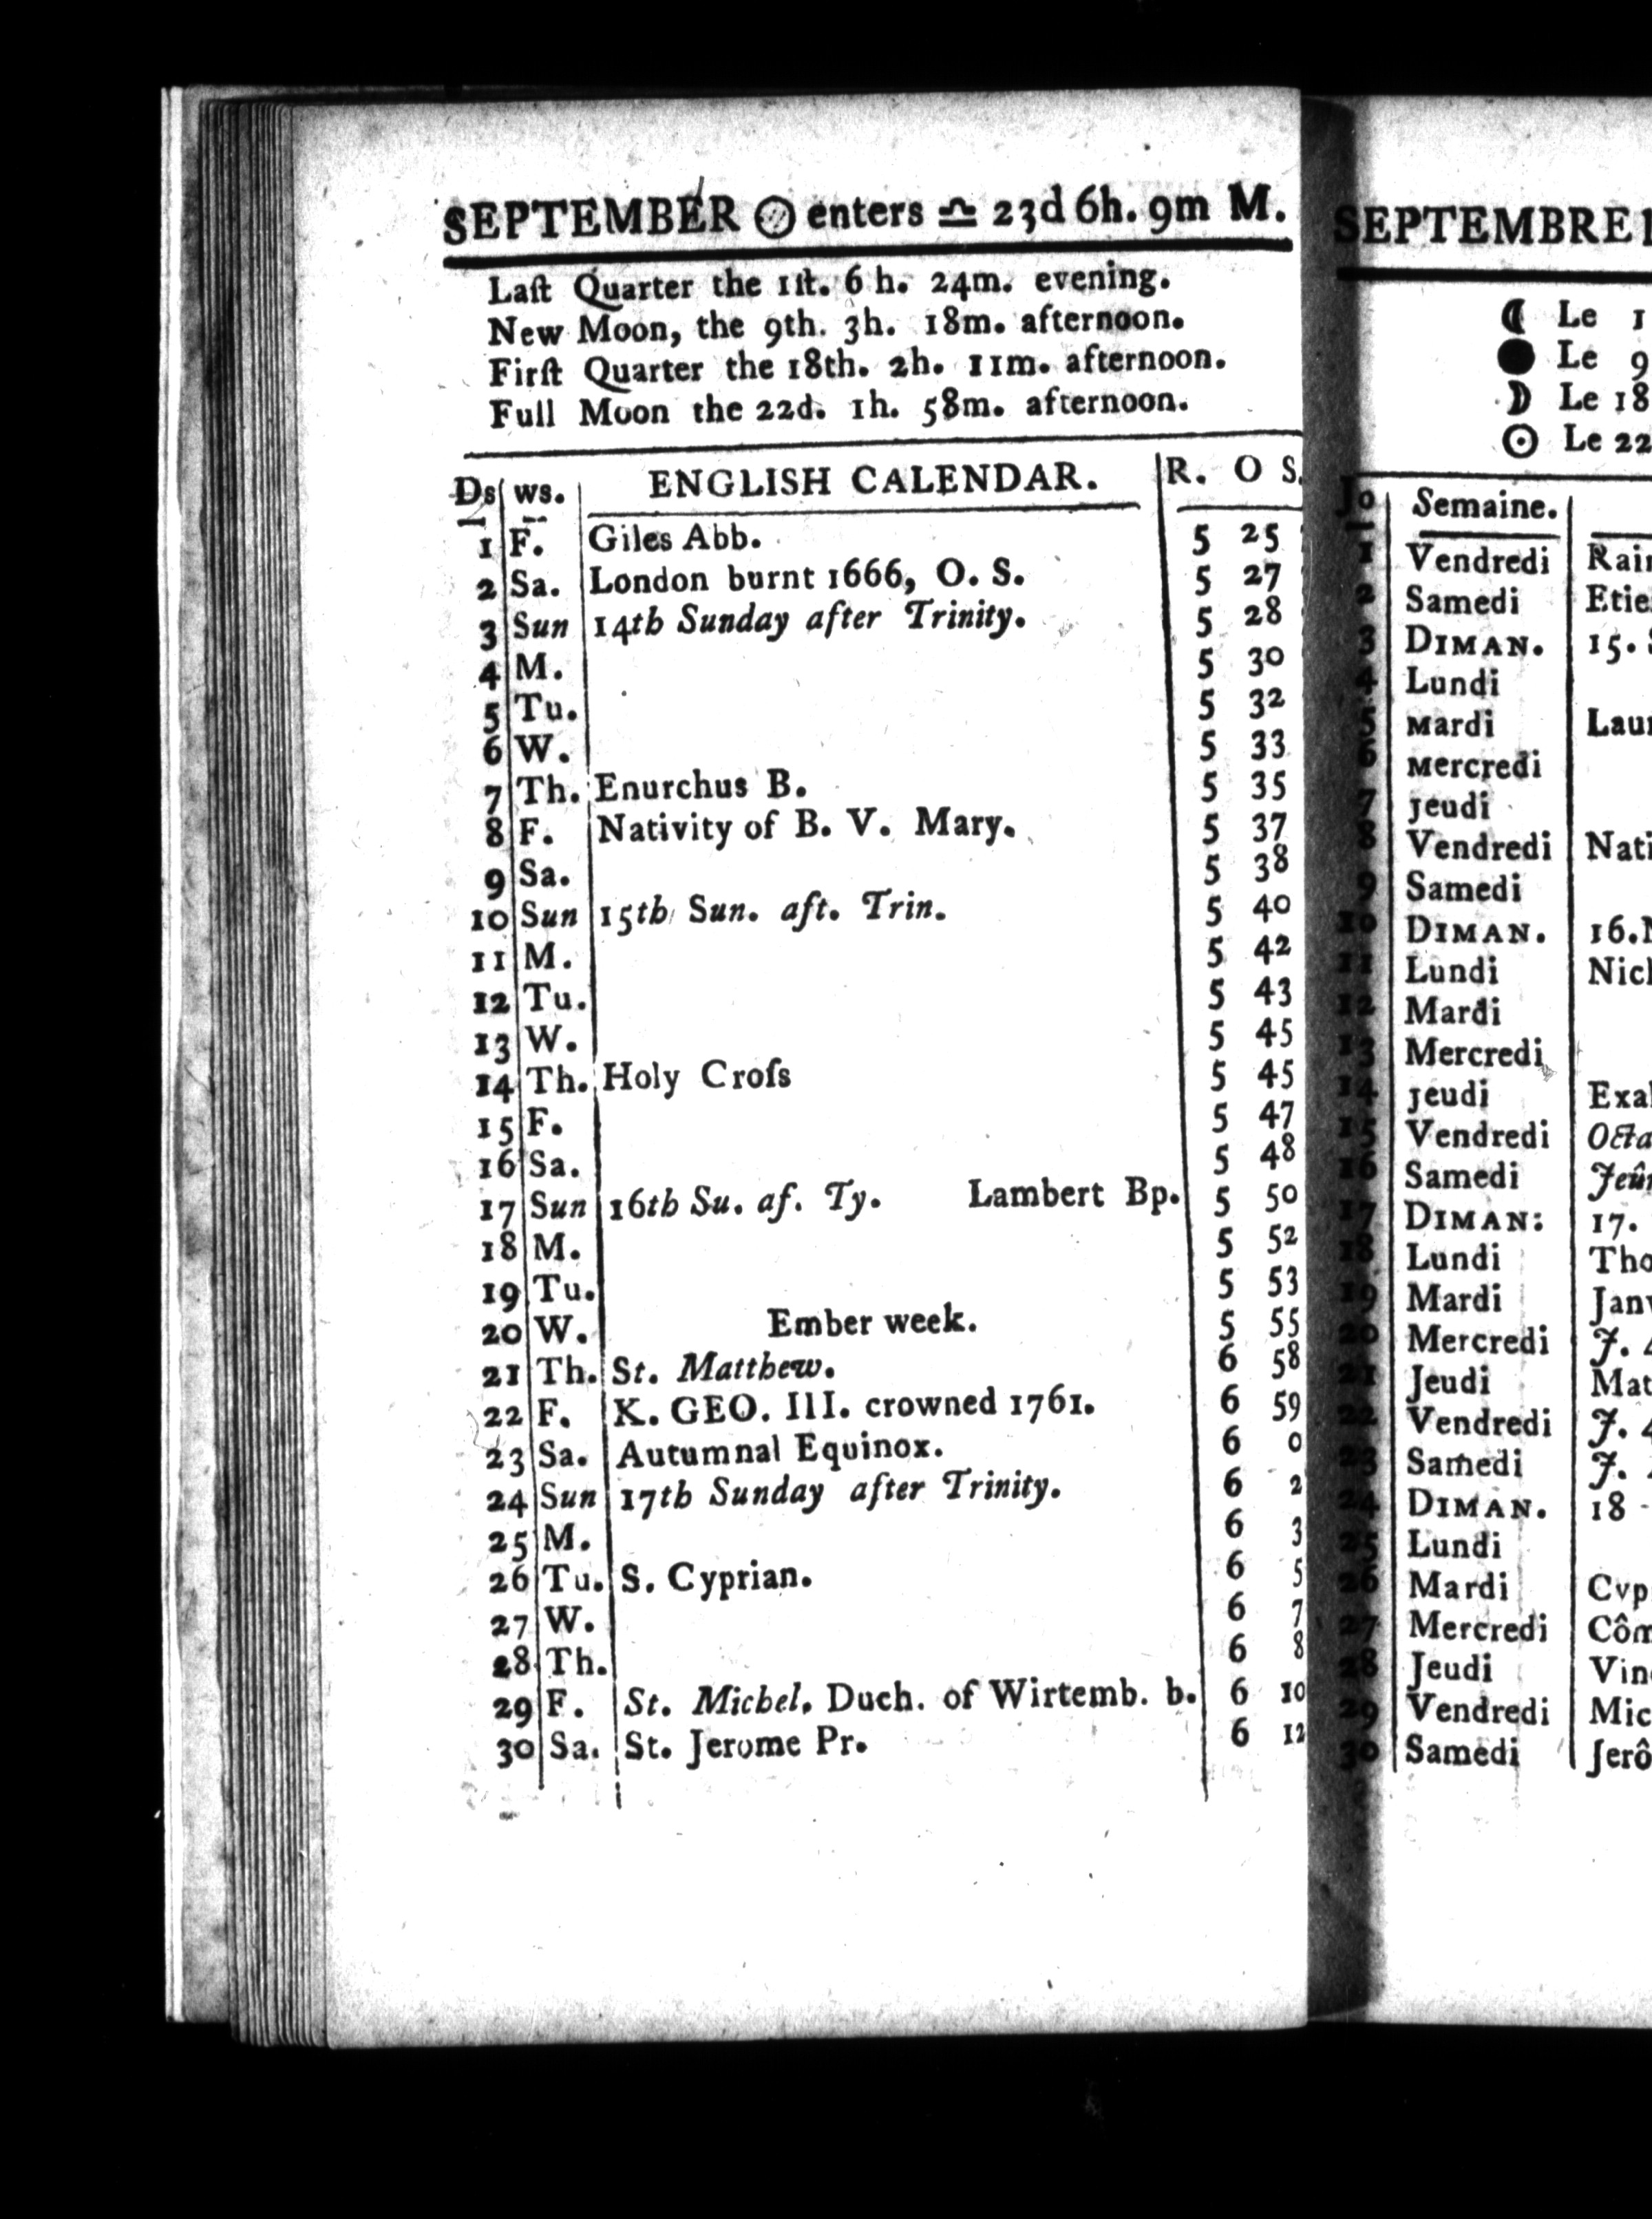 SEPTEMBER ☉ enters ♎ 23d 6h. 9m M.
Laſt Quarter the 1ſt. 6 h. 24m. evening.
New Moon, the 9th. 3h. 18m. afternoon.
Firſt Quarter the 18th. 2h. 11m. afternoon.
Full Moon the 22d. 1h. 58m. afternoon.
Ds ws. ENGLISH CALENDAR. R. O S.
1 F. Giles Abb. 5 25
2 Sa. London burnt 1666, O. S. 5 27
3 Sun 14th Sunday after Trinity. 5 28
4 M. 5 30
5 Tu. 5 32
6 W. 5 33
7 Th. Enurchus B. 5 35
8 F. Nativity of B. V. Mary. 5 37
9 Sa. 5 38
10 Sun 15th Sun. aft. Trin. 5 40
11 M. 5 42
12 Tu. 5 43
13 W. 5 45
14 Th. Holy Croſs 5 45
15 F. 5 47
16 Sa. 5 48
17 Sun 16th Su. af. Ty. Lambert Bp. 5 50
18 M. 5 52
19 Tu. 5 53
20 W. Ember week. 5 55
21 Th. St. Matthew. 6 58
22 F. K. GEO. III. crowned 1761. 6 59
23 Sa. Autumnal Equinox. 6 0
24 Sun 17th Sunday after Trinity. 6 2
25 M. 6 3
26 Tu. S. Cyprian. 6 5
27 W. 6 7
28 Th. 6 8
29 F. St. Michel, Duch. of Wirtemb. b. 6 10
30 Sa. St. Jerome Pr. 6 12
SEPTEMBRE
☾ Le 1
● Le 9
☽ Le 18
☉ Le 22
Jo Semaine.
1 Vendredi Rai
2 Samedi Etie
3 DIMAN. 15.
4 Lundi
5 Mardi Lau
6 Mercredi
7 Jeudi
8 Vendredi Nati
9 Samedi
10 DIMAN. 16.
11 Lundi Nic
12 Mardi
13 Mercredi
14 Jeudi Exa
15 Vendredi Octa
16 Samedi Jeû
17 DIMAN: 17.
18 Lundi Tho
19 Mardi Jan
20 Mercredi J. 4
21 Jeudi Mat
22 Vendredi J. 4
23 Samedi J.
24 DIMAN. 18
25 Lundi
26 Mardi Cyp
27 Mercredi Côm
28 Jeudi Vin
29 Vendredi Mic
30 Samedi Jerô